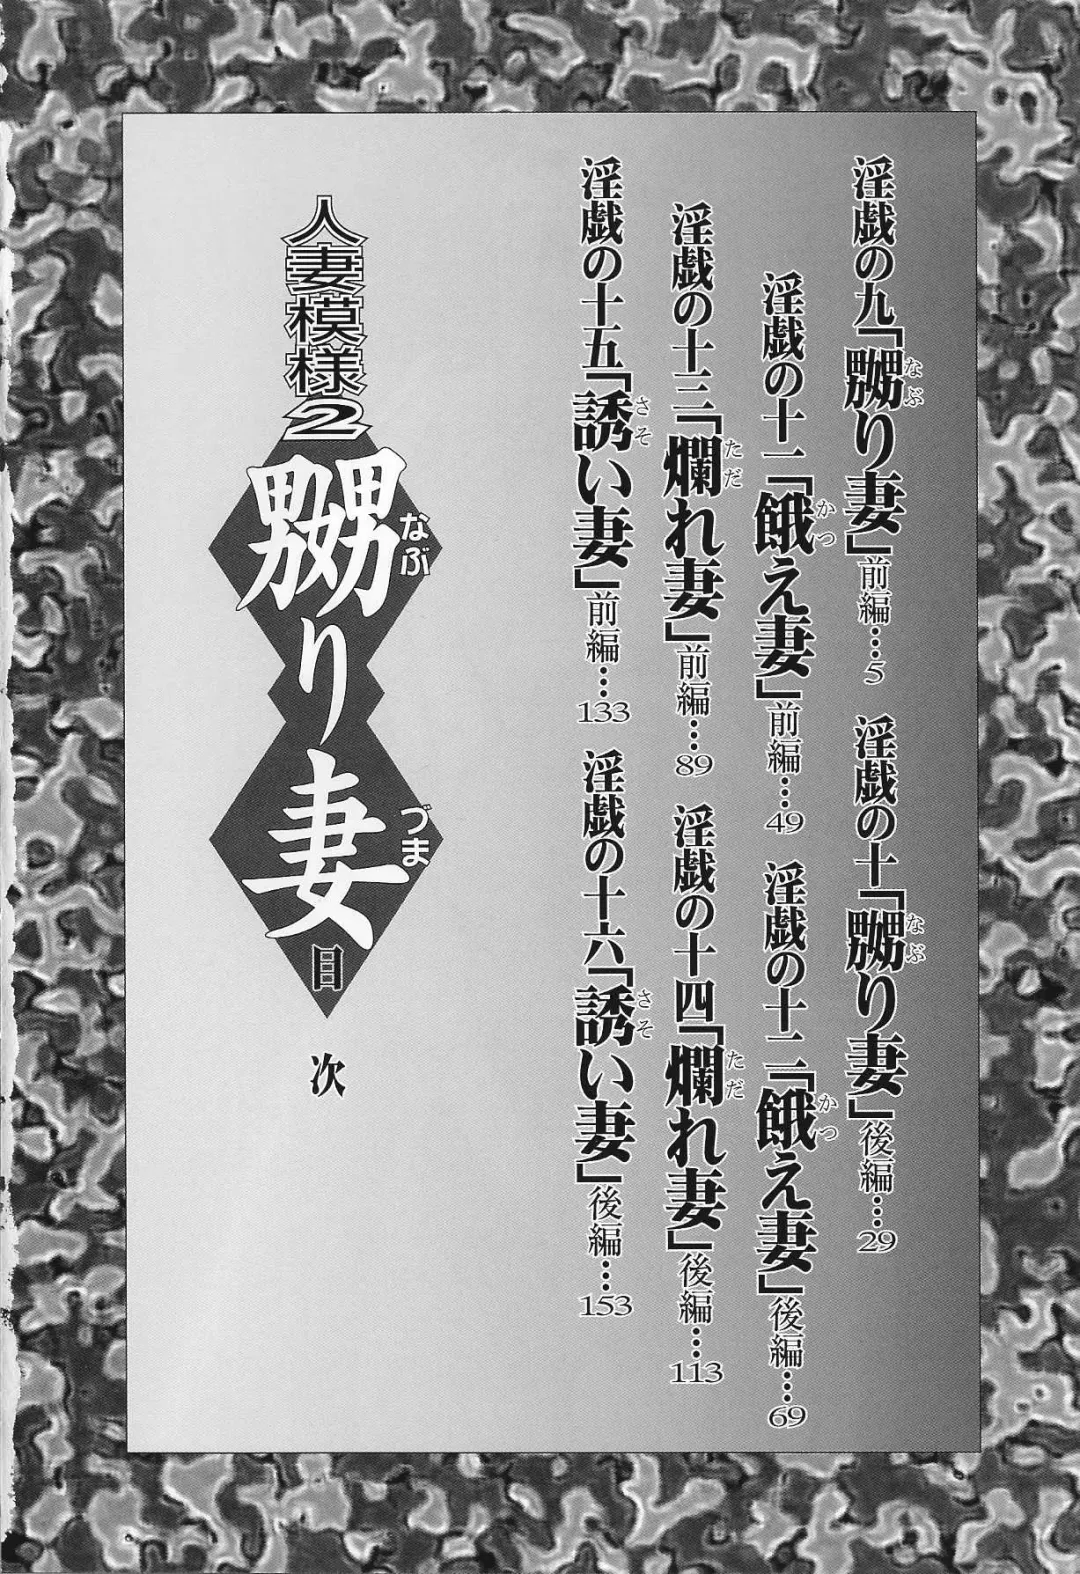 淫戯の九「嬲り妻」前編…5
なぶ
淫戯の十「嬲り妻」後編…29
なぶ
淫戯の十一「餓え妻」前編…49
かつ
淫戯の十二「餓え妻」後編…69
かつ
淫戯の十三「爛れ妻」前編…89
ただ
淫戯の十四「爛れ妻」後編…113
ただ
淫戯の十五「誘い妻」前編…133
さそ
淫戯の十六「誘い妻」後編…153
さそ
人妻模様2
嬲り妻
なぶ
づま
目次